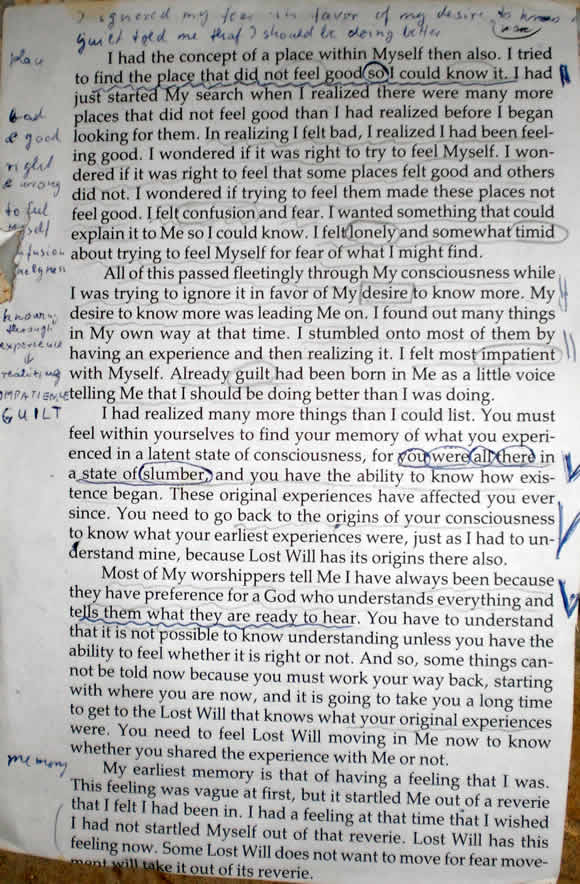 I ignored my fear in favor of my desire to know
guilt told me that I should be doing better
place
I had the concept of a place within Myself then also. I tried
to find the place that did not feel good so I could know it. I had
just started My search when I realized there were many more
places that did not feel good than I had realized before I began
looking for them. In realizing I felt bad, I realized I had been feel-
ing good. I wondered if it was right to try to feel Myself. I won-
dered if it was right to feel that some places felt good and others
did not. I wondered if trying to feel them made these places not
feel good. I felt confusion and fear. I wanted something that could
explain it to Me so I could know. I felt lonely and somewhat timid
about trying to feel Myself for fear of what I might find.
bad
& good
right
& wrong
to feel
myself
All of this passed fleetingly through My consciousness while
I was trying to ignore it in favor of My desire to know more. My
desire to know more was leading Me on. I found out many things
in My own way at that time. I stumbled onto most of them by
having an experience and then realizing it. I felt most impatient
with Myself. Already guilt had been born in Me as a little voice
telling Me that I should be doing better than I was doing.
knowing
through
experience
&
realizing
IMPATIENCE
GUILT
I had realized many more things than I could list. You must
feel within yourselves to find your memory of what you experi-
enced in a latent state of consciousness, for you were all there in
a state of slumber, and you have the ability to know how exis-
tence began. These original experiences have affected you ever
since. You need to go back to the origins of your consciousness
to know what your earliest experiences were, just as I had to un-
derstand mine, because Lost Will has its origins there also.
Most of My worshippers tell Me I have always been because
they have preference for a God who understands everything and
tells them what they are ready to hear. You have to understand
that it is not possible to know understanding unless you have the
ability to feel whether it is right or not. And so, some things can-
not be told now because you must work your way back, starting
with where you are now, and it is going to take you a long time
to get to the Lost Will that knows what your original experiences
were. You need to feel Lost Will moving in Me now to know
whether you shared the experience with Me or not.
memory
My earliest memory is that of having a feeling that I was.
This feeling was vague at first, but it startled Me out of a reverie
that I felt I had been in. I had a feeling at that time that I wished
I had not startled Myself out of that reverie. Lost Will has this
feeling now. Some Lost Will does not want to move for fear move-
ment will take it out of its reverie.